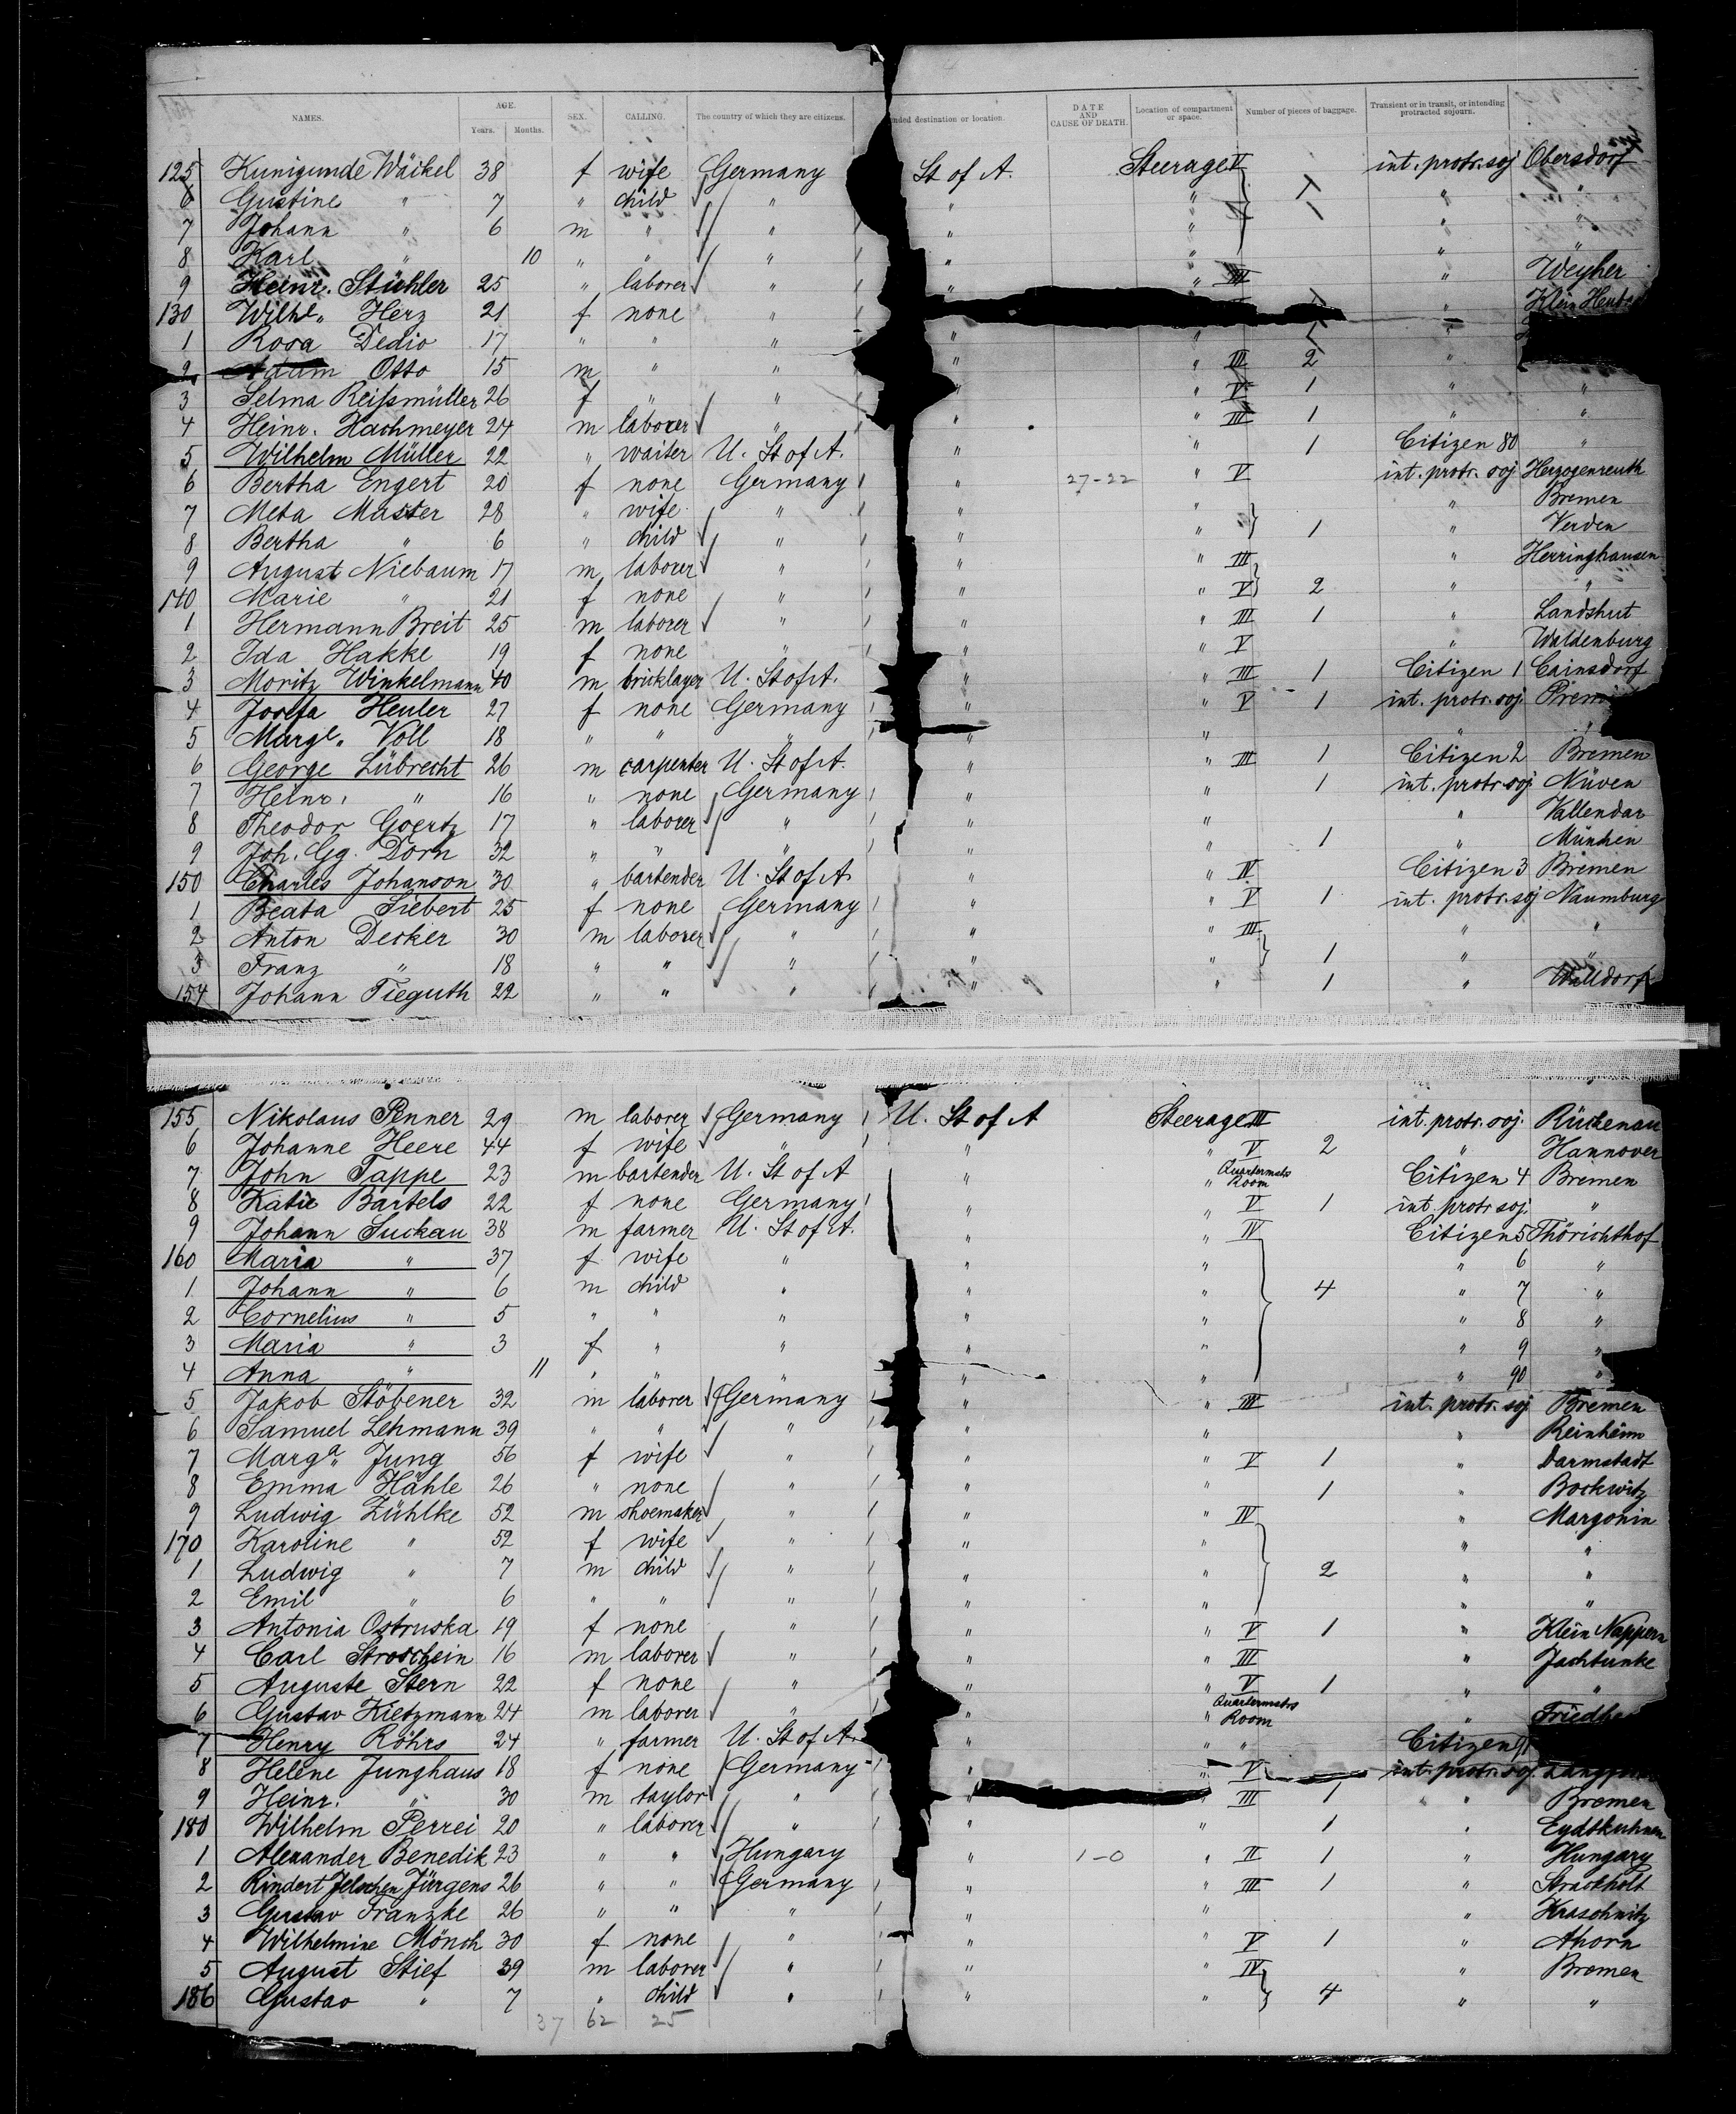 NAMES. AGE. Years. Months. SEX. CALLING. The country of which they are citizens. nded destination or location. DATE AND CAUSE OF DEATH. Location of compartment or space. Number of pieces of baggage. Transient or in transit, or intending protracted sojourn.
125 Kunigunde Wäikel 38 f wife Germany St of A. Steerage V int. protr. soj Obersdorf
6 Gustine " 7 " child " " " "  "
7 Johann " 6 m " " " " " "
8 Karl " 10 " " " " " "
9 Heinr. Stühler 25 " laborer " " " III " Weyher
130 Wilhe. Herz 21 f none " "
1 Rosa Dedio 17 " " " " " "
2 Adam Otto 15 m " " " " III 2 "
3 Selma Reißmüller 26 f " " " " V 1 " "
4 Heinr. Hachmeyer 24 m laborer " " " III 1 " "
5 Wilhelm Müller 22 " waiter U. St of A. " " 1 Citizen 80 "
6 Bertha Engert 20 f none Germany " 27-22 " V int. protr. soj Herzogenreuth
7 Meta Master 28 " wife " " " " Bremen
8 Bertha " 6 " child " " " 1 " Verden
9 August Niebaum 17 m laborer " " III " Herringhausen
140 Marie " 21 f none " " " V 2 " "
1 Hermann Breit 25 m laborer " " " III 1 " Landshut
2 Ida Hakke 19 f none " " " V " Waldenburg
3 Moritz Winkelmann 40 m bricklayer U. St of A. " " III 1 Citizen 1 Cainsdorf
4 Josefa Heuler 27 f none Germany " " V 1 int. protr. soj.
5 Marge. Voll 18 " " " " "
6 George Lübrecht 26 m carpenter U. St of A. " " III 1 Citizen 2 Bremen
7 Heinr. " 16 " none Germany " " 1 int. protr. soj. Nüven
8 Theodor Goertz 17 " laborer " " " " Vallendar
9 Joh. Gg. Dorn 32 " " " " " 1 " München
150 Charles Johanson 30 " bartender U. St of A. " " IV Citizen 3 Bremen
1 Beata Siebert 25 f none Germany " " V 1 int. protr. soj Naumburg
2 Anton Decker 30 m laborer " " " III " "
3 Franz " 18 " " " " " 1 " "
154 Johann Tieguth 22 " " " " " 1 " Walldorf
155 Nikolaus Penner 29 m laborer Germany U. St of A Steerage III int. protr. soj. Rückenau
6 Johanne Heere 44 f wife " " " V 2 " Hannover
7 John Tappe 23 m bartender U. St of A " " Quartermstrs Room Citizen 4 Bremen
8 Katie Bartels 22 f none Germany " " V 1 int. protr soj. "
9 Johann Suckau 38 m farmer U. St of A. " " IV Citizen 5 Thörichthof
160 Maria " 37 f wife " " " " 6 "
1 Johann " 6 m child " " " 4 " 7 "
2 Cornelius " 5 " " " " " " 8 "
3 Maria " 3 f " " " " " 9 "
4 Anna " 11 " " " " " " 90 "
5 Jakob Stöbener 32 m laborer Germany " " III int. protr. soj Bremen
6 Samuel Lehmann 39 " " " " " " Reinheim
7 Marga. Jung 56 f wife " " " V 1 " Darmstadt
8 Emma Hähle 26 " none " " " 1 " Bockwitz
9 Ludwig Zühlke 52 m shoemaker " " " IV " Margonin
170 Karoline " 52 f wife " " " " "
1 Ludwig " 7 m child " " " 2 " "
2 Emil " 6 " " " " " " "
3 Antonia Ostruska 19 f none " " " V 1 " Klein Nappern
4 Carl Stroschein 16 m laborer " " " III " Jachtunke
5 Auguste Stern 22 f none " " " V 1 " "
6 Gustav Kietzmann 24 m laborer " " " Quartermstrs Room "
7 Henry Röhrs 24 " farmer U. St of A. " " " Citizen 91
8 Helene Junghaus 18 f none Germany " " V int. protr. soj.
9 Heinr. " 30 m taylor " " III 1 " Bremen
180 Wilhelm Perrei 20 " laborer " " " 1 " Eydtkuhnen
1 Alexander Benedik 23 " " Hungary " 1-0 " II 1 " Hungary
2 Rindert Jelschen Jürgens 26 " " Germany " " III 1 " Strackholt
3 Gustav Franzke 26 " " " " " " Kraschnitz
4 Wilhelmine Mönch 30 f none " " " V 1 " Ahorn
5 August Stief 39 m laborer " " " IV " Bremen
186 Gustav " 7 " child " " " 4 " "
37 62 25